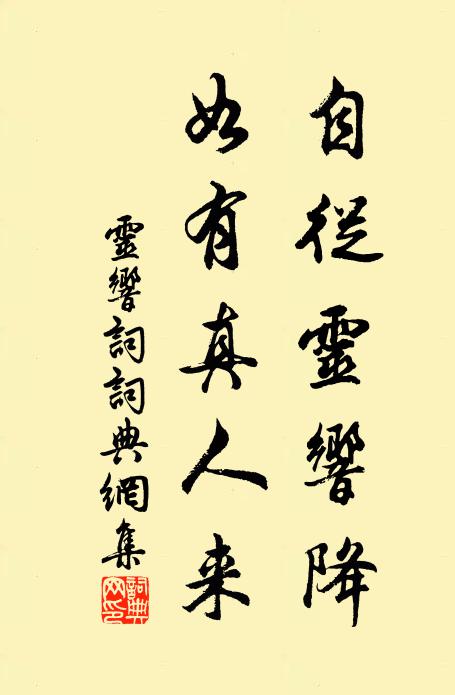 自從靈響降
如有真人来
靈響詞詞典網集
詞典网印